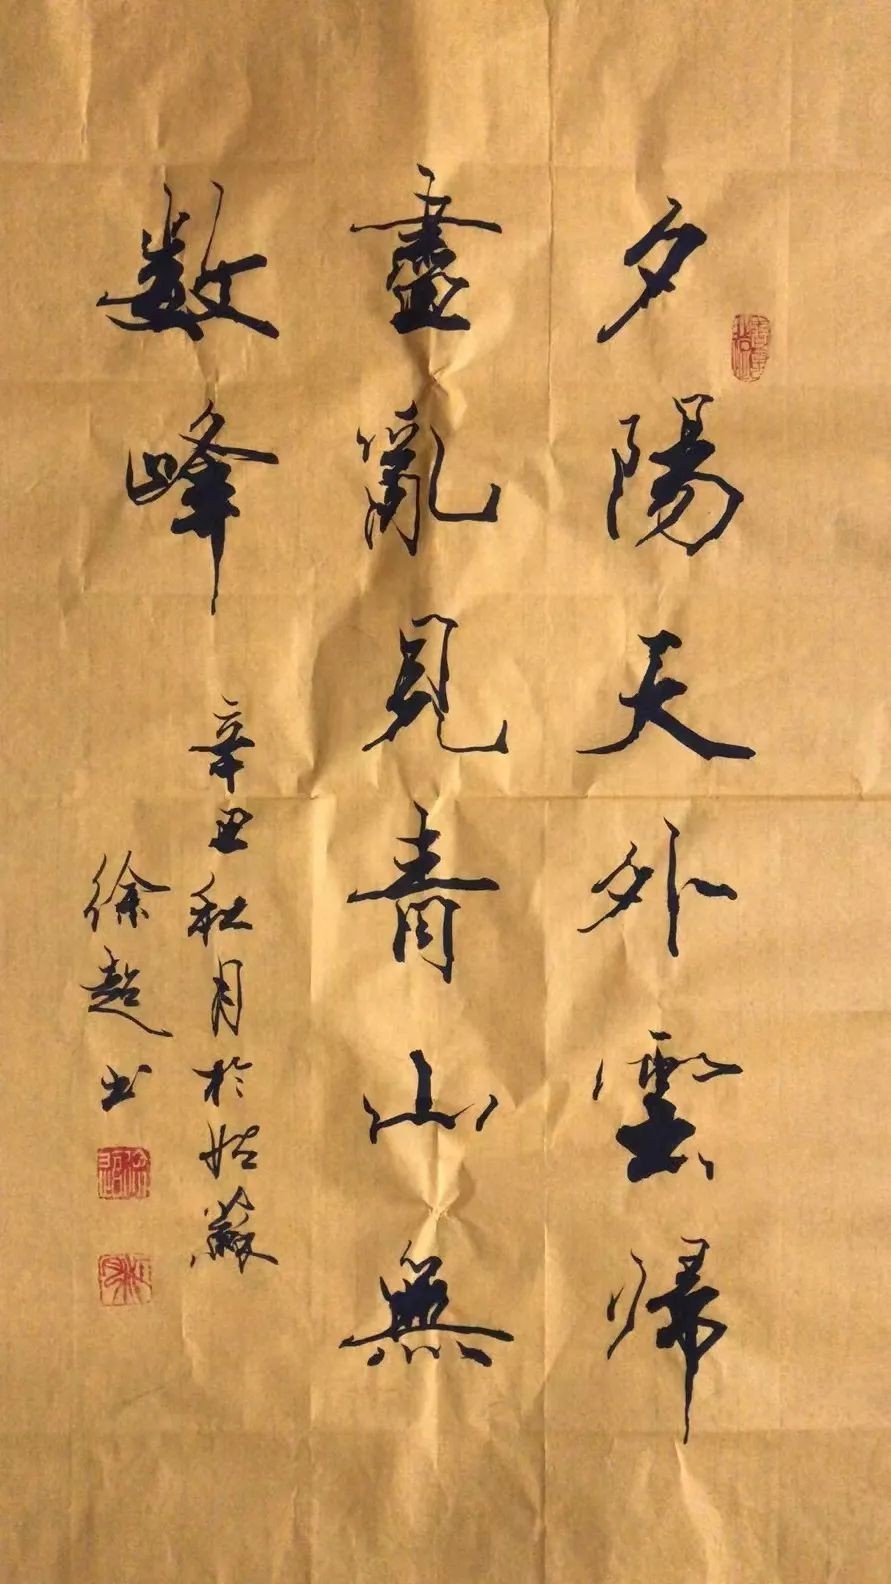 夕陽天外雲歸
盡亂見青山無
數峰
辛丑秋月於姑蘇
徐超书